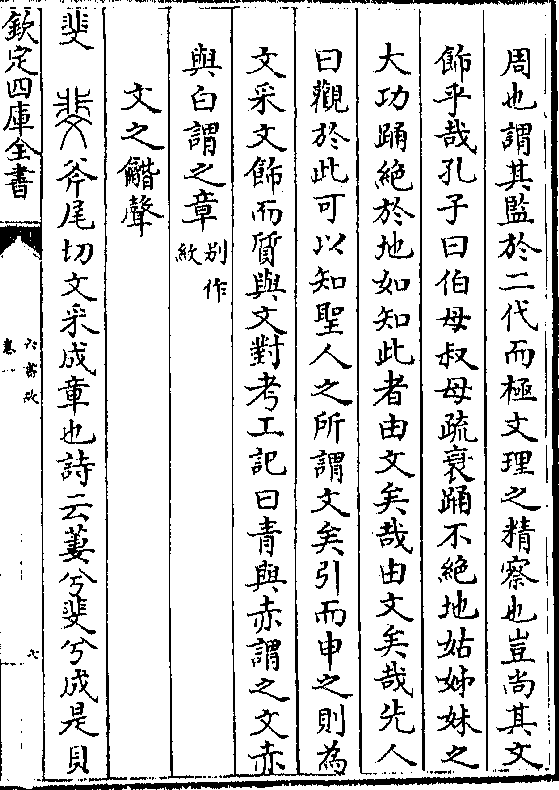 周也謂其監於二代而極文理之精察也豈尚其文
飾乎哉孔子曰伯母叔母疏衰踊不絶地姑姊妹之
大功踊絶於地如知此者由文矣哉由文矣哉先人
曰觀於此可以知聖人之所謂文矣引而申之則為
文采文飾而質與文對考工記曰青與赤謂之文赤
與白謂之章别作紋
文之龤聲
斐 斐斧尾切文采成章也詩云萋兮斐兮成是貝
欽定四庫全書
六書故
卷一
六